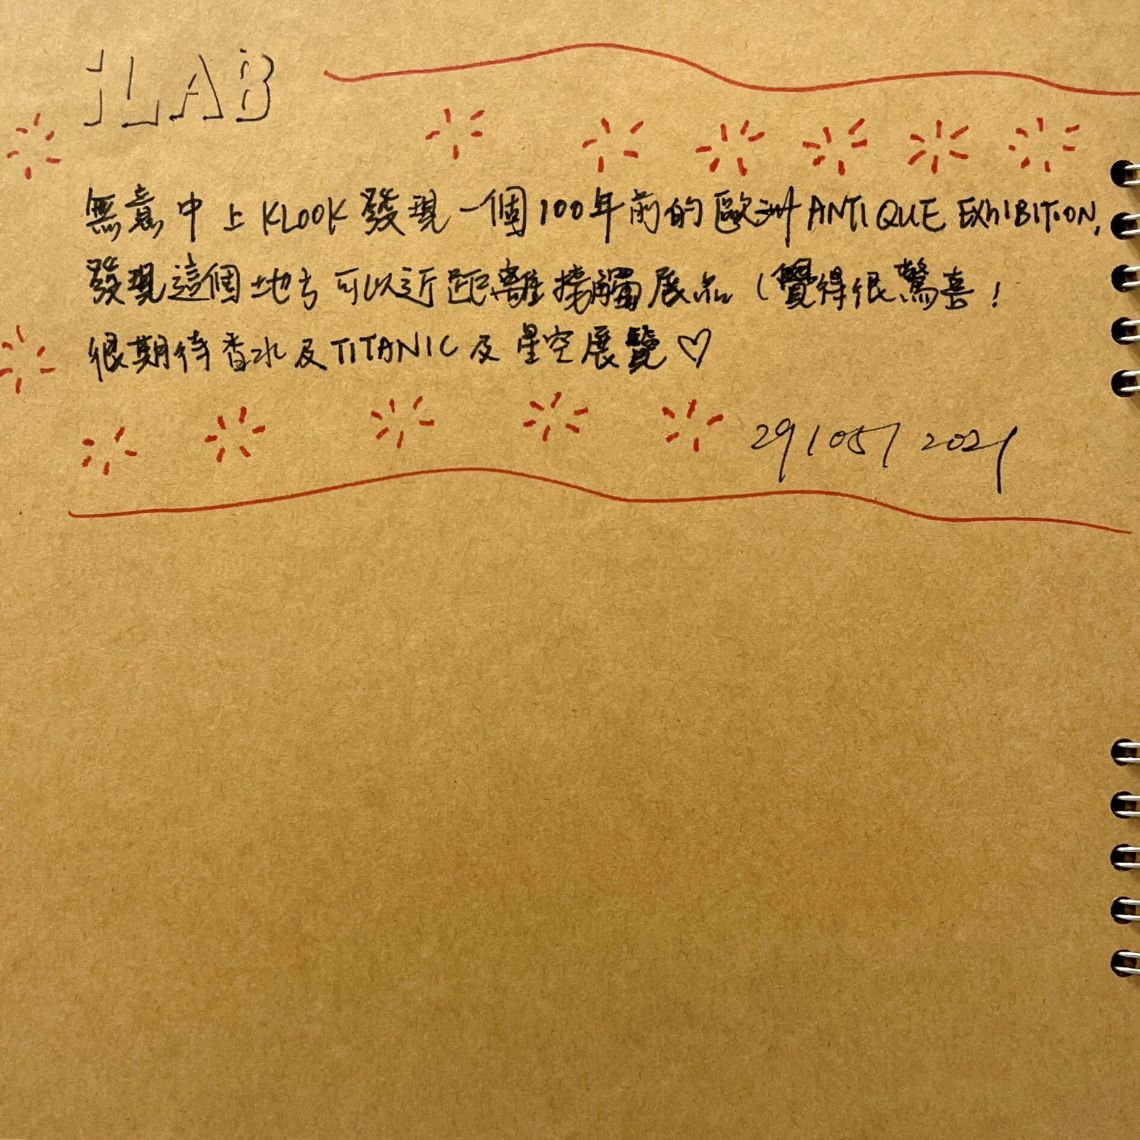 ILAB
無意中上KLOOK發現一個100年前的歐洲ANTIQUE EXHIBITION,
發現這個地方可以近距離接觸展品,覺得很驚喜!
很期待香水及TITANIC及星空展覽♡
29/05/2021